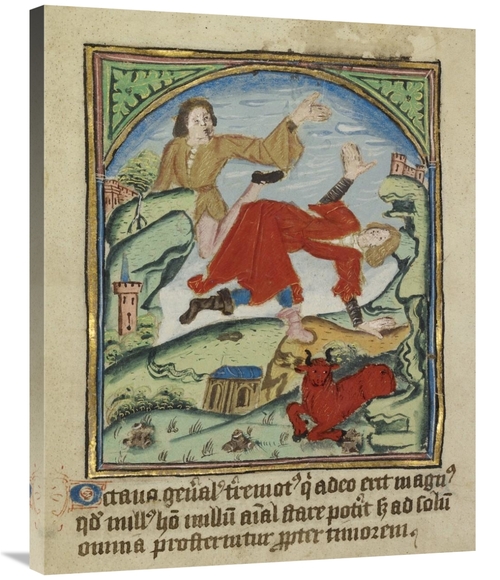 Octava. gen̄al' t̄remot' q̄ adeo erit magn'
qd' null' hō nullū aīal stare pot̄it sȝ ad solum
omnia prosternuntur ꝓpter timorem.